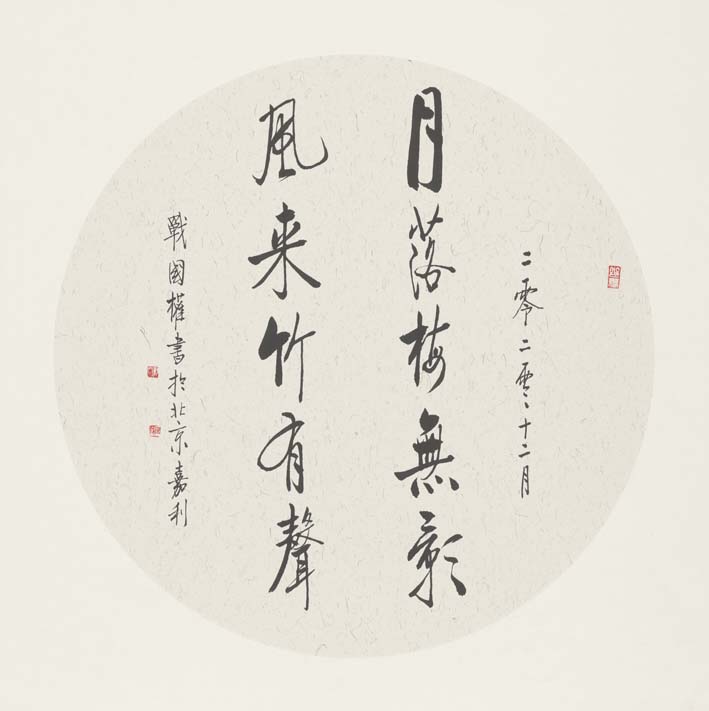 二零二零、十二月
月落梅無影
風来竹有聲
戰國權書於北京嘉利